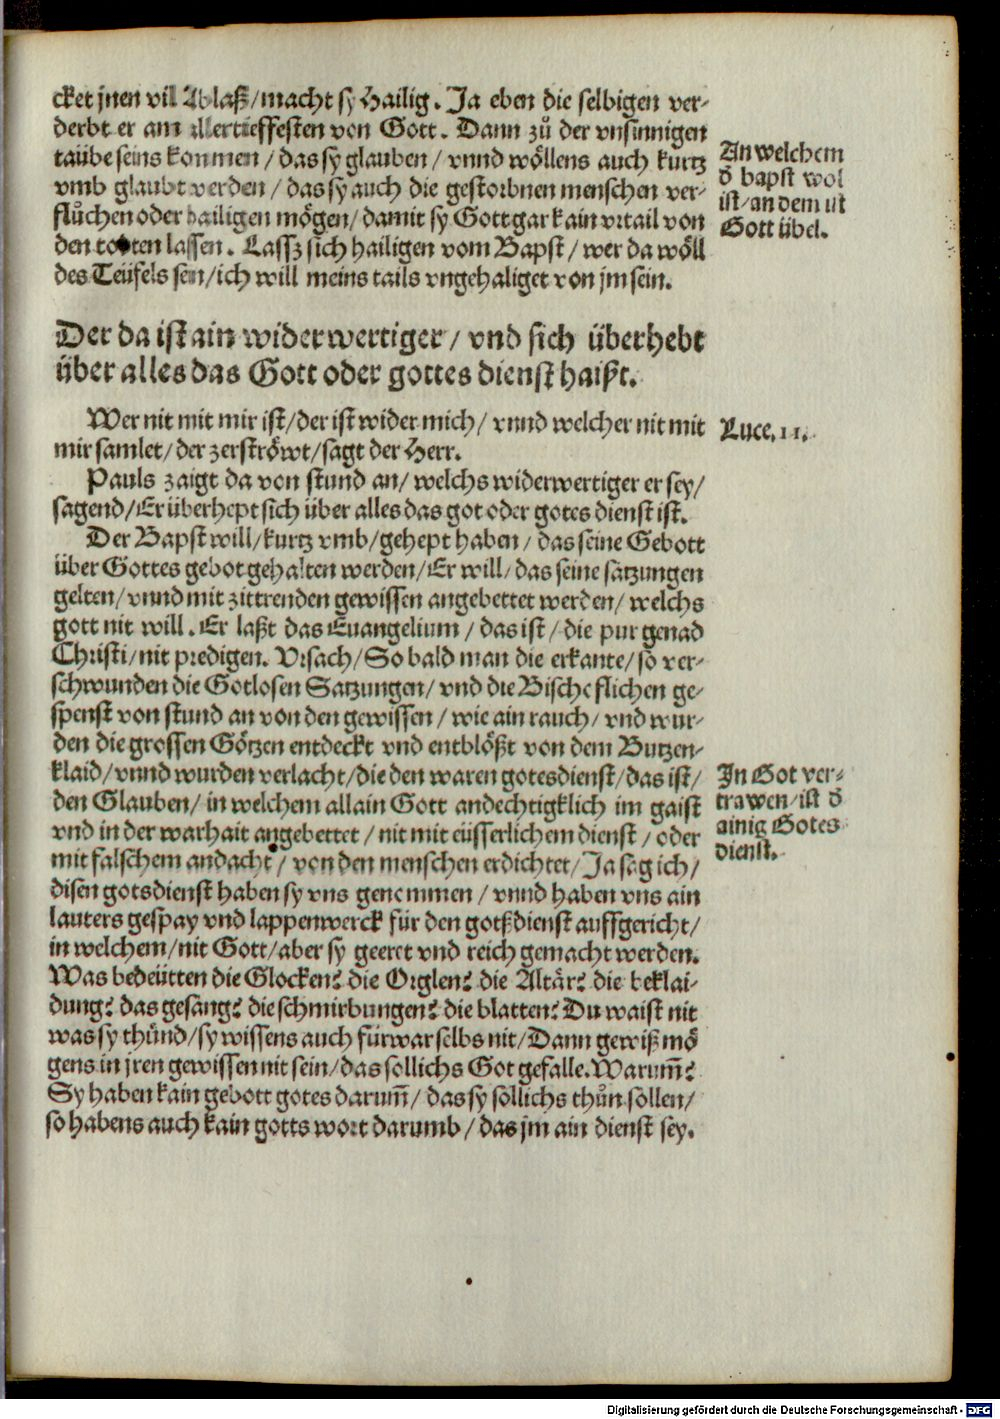 cket jnen vil Ablaß/macht sy Hailig. Ja eben die selbigen ver⸗
derbt er am allertieffesten von Gott. Dann zů der vnsinnigen
taübe seins kommen/das sy glauben/vnnd wöllens auch kurtz
vmb glaubt werden/das sy auch die gestorbnen menschen ver⸗
flůchen oder hailigen mögen/damit sy Gott gar kain vrtail von
den todten lassen. Lassz sich hailigen vom Bapst/wer da wöll
des Teüfels sein/ich will meins tails vngehaliget von jm sein.
An welchem
d̄ bapst wol
ist/an dem ist
Gott übel.
Der da ist ain widerwertiger/vnd sich überhebt
über alles das Gott oder gottes dienst haißt.
Wer nit mit mir ist/der ist wider mich/vnnd welcher nit mit
mir samlet/der zerströwt/sagt der Herr.
Luce.11.
Pauls zaigt da von stund an/welchs widerwertiger er sey/
sagend/Er überhept sich über alles das got oder gotes dienst ist.
Der Bapst will/kurtz vmb/gehept haben/das seine Gebott
über Gottes gebot gehalten werden/Er will/das seine satzungen
gelten/vnnd mit zittrenden gewissen angebettet werden/welchs
gott nit will. Er laßt das Euangelium/das ist/die pur genad
Christi/nit predigen. Vrsach/So bald man die erkante/so ver⸗
schwunden die Gotlosen Satzungen/vnd die Bischeflichen ge⸗
spenst von stund an von den gewissen/wie ain rauch/vnd wur⸗
den die grossen Götzen entdeckt vnd entblößt von dem Butzen⸗
klaid/vnnd wurden verlacht/die den waren gotesdienst/das ist/
den Glauben/in welchem allain Gott andechtigklich im gaist
vnd in der warhait angebettet/nit mit eüsserlichem dienst/oder
mit falschem andacht/von den menschen erdichtet/Ja sag ich/
disen gotsdienst haben sy vns genommen/vnnd haben vns ain
lauters gespay vnd lappenwerck für den gotßdienst auffgericht/
in welchem/nit Gott/aber sy geeret vnd reich gemacht werden.
Was bedeütten die Glocken? die Orglen? die Altär? die beklai⸗
dung? das gesang? die schmirbungen? die blatten? Du waist nit
was sy thůnd/sy wissens auch fürwar selbs nit/Dann gewiß mö
gens in jren gewissen nit sein/das sollichs Got gefalle. Warum̄?
Sy haben kain gebott gotes darum̄/das sy söllichs thůn söllen/
so habens auch kain gotts wort darumb/das jm ain dienst sey.
In Got ver⸗
trawen/ist d̄
ainig Gotes
dienst.
Digitalisierung gefördert durch die Deutsche Forschungsgemeinschaft - DFG